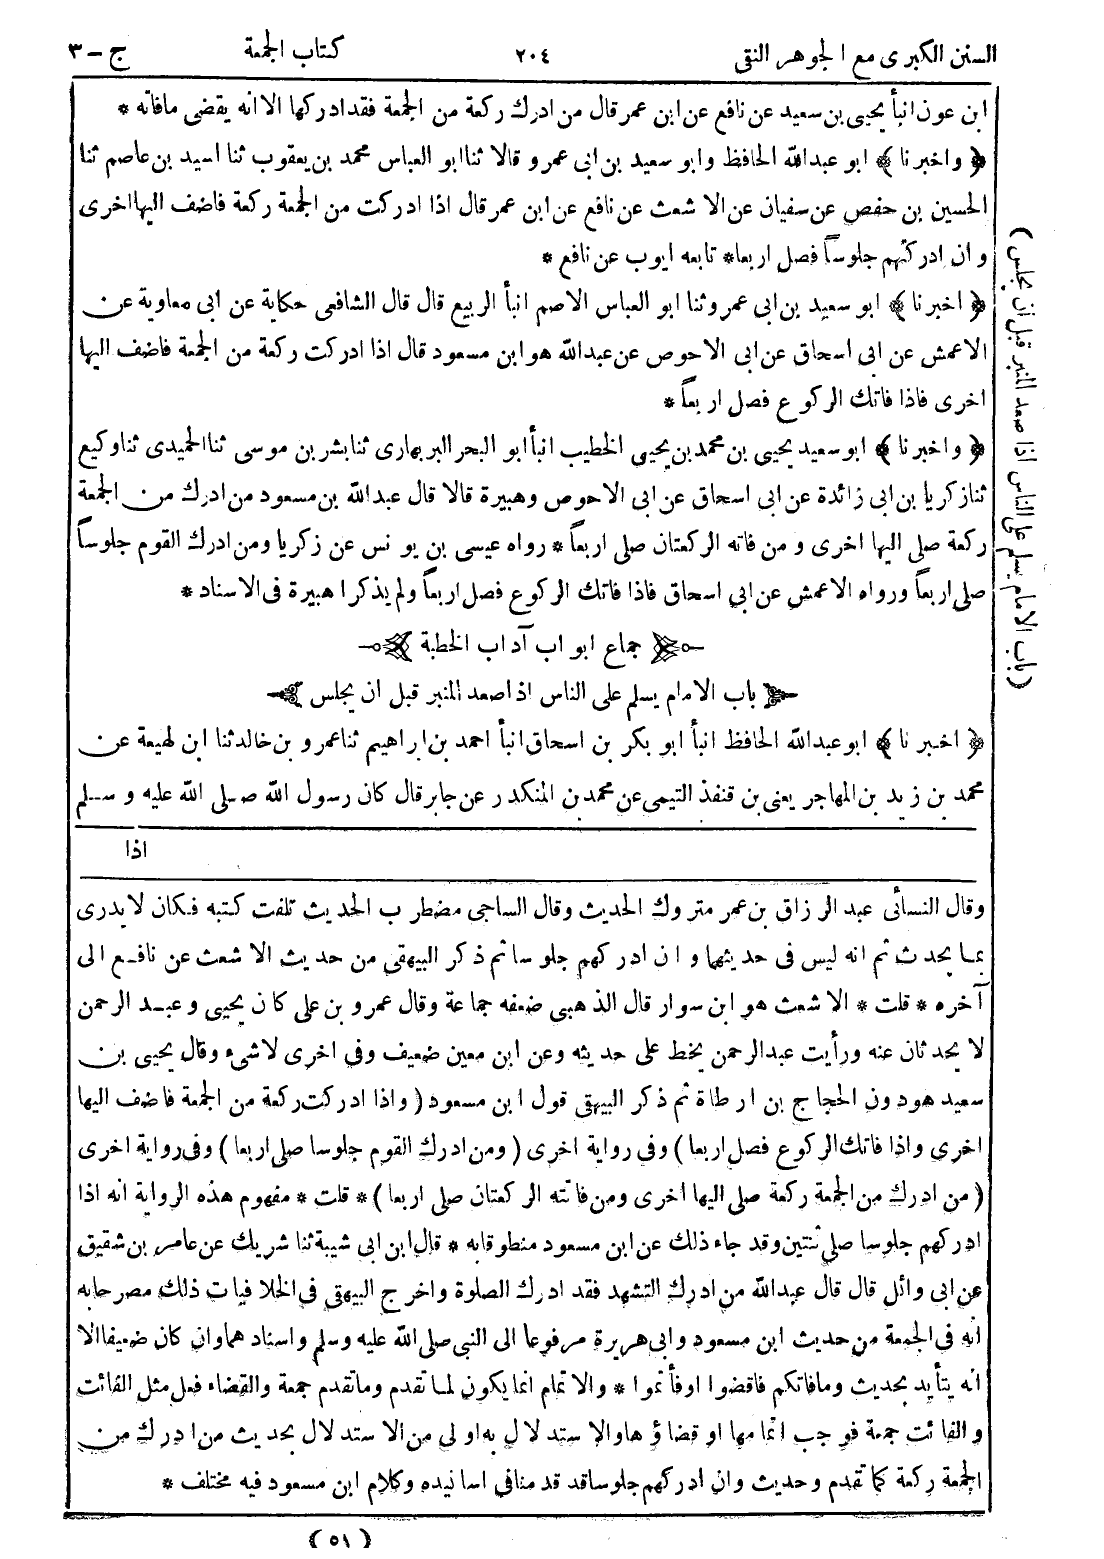 السنن الكبرى مع الجوهر النقى ٢٠٤ كتاب الجمعة ج - ٣
ابن عون انبأ يحيى بن سعيد عن نافع عن ابن عمر قال من ادرك ركعة من الجمعة فقد ادركها الا انه يقضى ما فاته *
﴿ واخبرنا ﴾ ابو عبد الله الحافظ وابو سعيد بن ابى عمرو قالا ثنا ابو العباس محمد بن يعقوب ثنا اسيد بن عاصم ثنا
الحسين بن حفص عن سفيان عن الاشعث عن نافع عن ابن عمر قال اذا ادركت من الجمعة ركعة فاضف اليها اخرى
وان ادركتهم جلوساً فصل اربعا * تابعه ايوب عن نافع *
﴿ اخبرنا ﴾ ابو سعيد بن ابى عمرو ثنا ابو العباس الاصم انبأ الربيع قال قال الشافعى حكاية عن ابى معاوية عن
الاعمش عن ابى اسحاق عن ابى الاحوص عن عبد الله هو ابن مسعود قال اذا ادركت ركعة من الجمعة فاضف اليها
اخرى فاذا فاتك الركوع فصل اربعاً *
﴿ واخبرنا ﴾ ابو سعيد يحيى بن محمد بن يحيى الخطيب انبأ ابو البحر البربهارى ثنا بشر بن موسى ثنا الحميدى ثنا وكيع
ثنا زكريا بن ابى زائدة عن ابى اسحاق عن ابى الاحوص وهبيرة قالا قال عبد الله بن مسعود من ادرك من الجمعة
ركعة صلى اليها اخرى ومن فاته الركعتان صلى اربعاً * رواه عيسى بن يونس عن زكريا ومن ادرك القوم جلوساً
صلى اربعاً ورواه الاعمش عن ابى اسحاق فاذا فاتك الركوع فصل اربعاً ولم يذكرا هبيرة فى الاسناد *
جماع ابواب آداب الخطبة
باب الامام يسلم على الناس اذا صعد المنبر قبل ان يجلس
﴿ اخبرنا ﴾ ابو عبد الله الحافظ انبأ ابو بكر بن اسحاق انبأ احمد بن ابراهيم ثنا عمرو بن خالد ثنا ابن لهيعة عن
محمد بن زيد بن المهاجر يعنى بن قنفذ التيمى عن محمد بن المنكدر عن جابر قال كان رسول الله صلى الله عليه وسلم
اذا
(باب الامام يسلم على الناس اذا صعد المنبر قبل ان يجلس)
وقال النسأئى عبد الرزاق بن عمر متروك الحديث وقال الساجى مضطرب الحديث تلفت كتبه فكان لا يدرى
بما يحدث ثم انه ليس فى حديثهما وان ادركهم جلوسا ثم ذكر البيهقى من حديث الاشعث عن نافع الى
آخره * قلت * الاشعث هو ابن سوار قال الذهبى ضعفه جماعة وقال عمرو بن على كان يحيى وعبد الرحمن
لا يحدثان عنه ورأيت عبد الرحمن يخط على حديثه وعن ابن معين ضعيف وفى اخرى لا شىء وقال يحيى بن
سعيد هو دون الحجاج بن ارطاة ثم ذكر البيهقى قول ابن مسعود ( واذا ادركت ركعة من الجمعة فاضف اليها
اخرى واذا فاتك الركوع فصل اربعا ) وفى رواية اخرى ( ومن ادرك القوم جلوسا صلى اربعا ) وفى رواية اخرى
( من ادرك من الجمعة ركعة صلى اليها اخرى ومن فاتته الركعتان صلى اربعا ) * قلت * مفهوم هذه الرواية انه اذا
ادركهم جلوسا صلى ثنتين وقد جاء ذلك عن ابن مسعود منطوقا به * قال ابن ابى شيبة ثنا شريك عن عامر بن شقيق
عن ابى وائل قال قال عبد الله من ادرك التشهد فقد ادرك الصلوة واخرج البيهقى فى الخلافيات ذلك مصرحا به
انه فى الجمعة من حديث ابن مسعود وابى هريرة مرفوعا الى النبى صلى الله عليه وسلم واسنادهما وان كان ضعيفا الا
انه يتأيد بحديث وما فاتكم فاقضوا اوفأتموا * والاتمام انما يكون لما تقدم وما تقدم جمعة والقضاء فعل مثل الفائت
والفائت جمعة فوجب اتمامها او قضاؤها والاستدلال به اولى من الاستدلال بحديث من ادرك من
الجمعة ركعة كما تقدم وحديث وان ادركهم جلوسا قد قدمنا فى اسانيده وكلام ابن مسعود فيه مختلف *
(٥١)